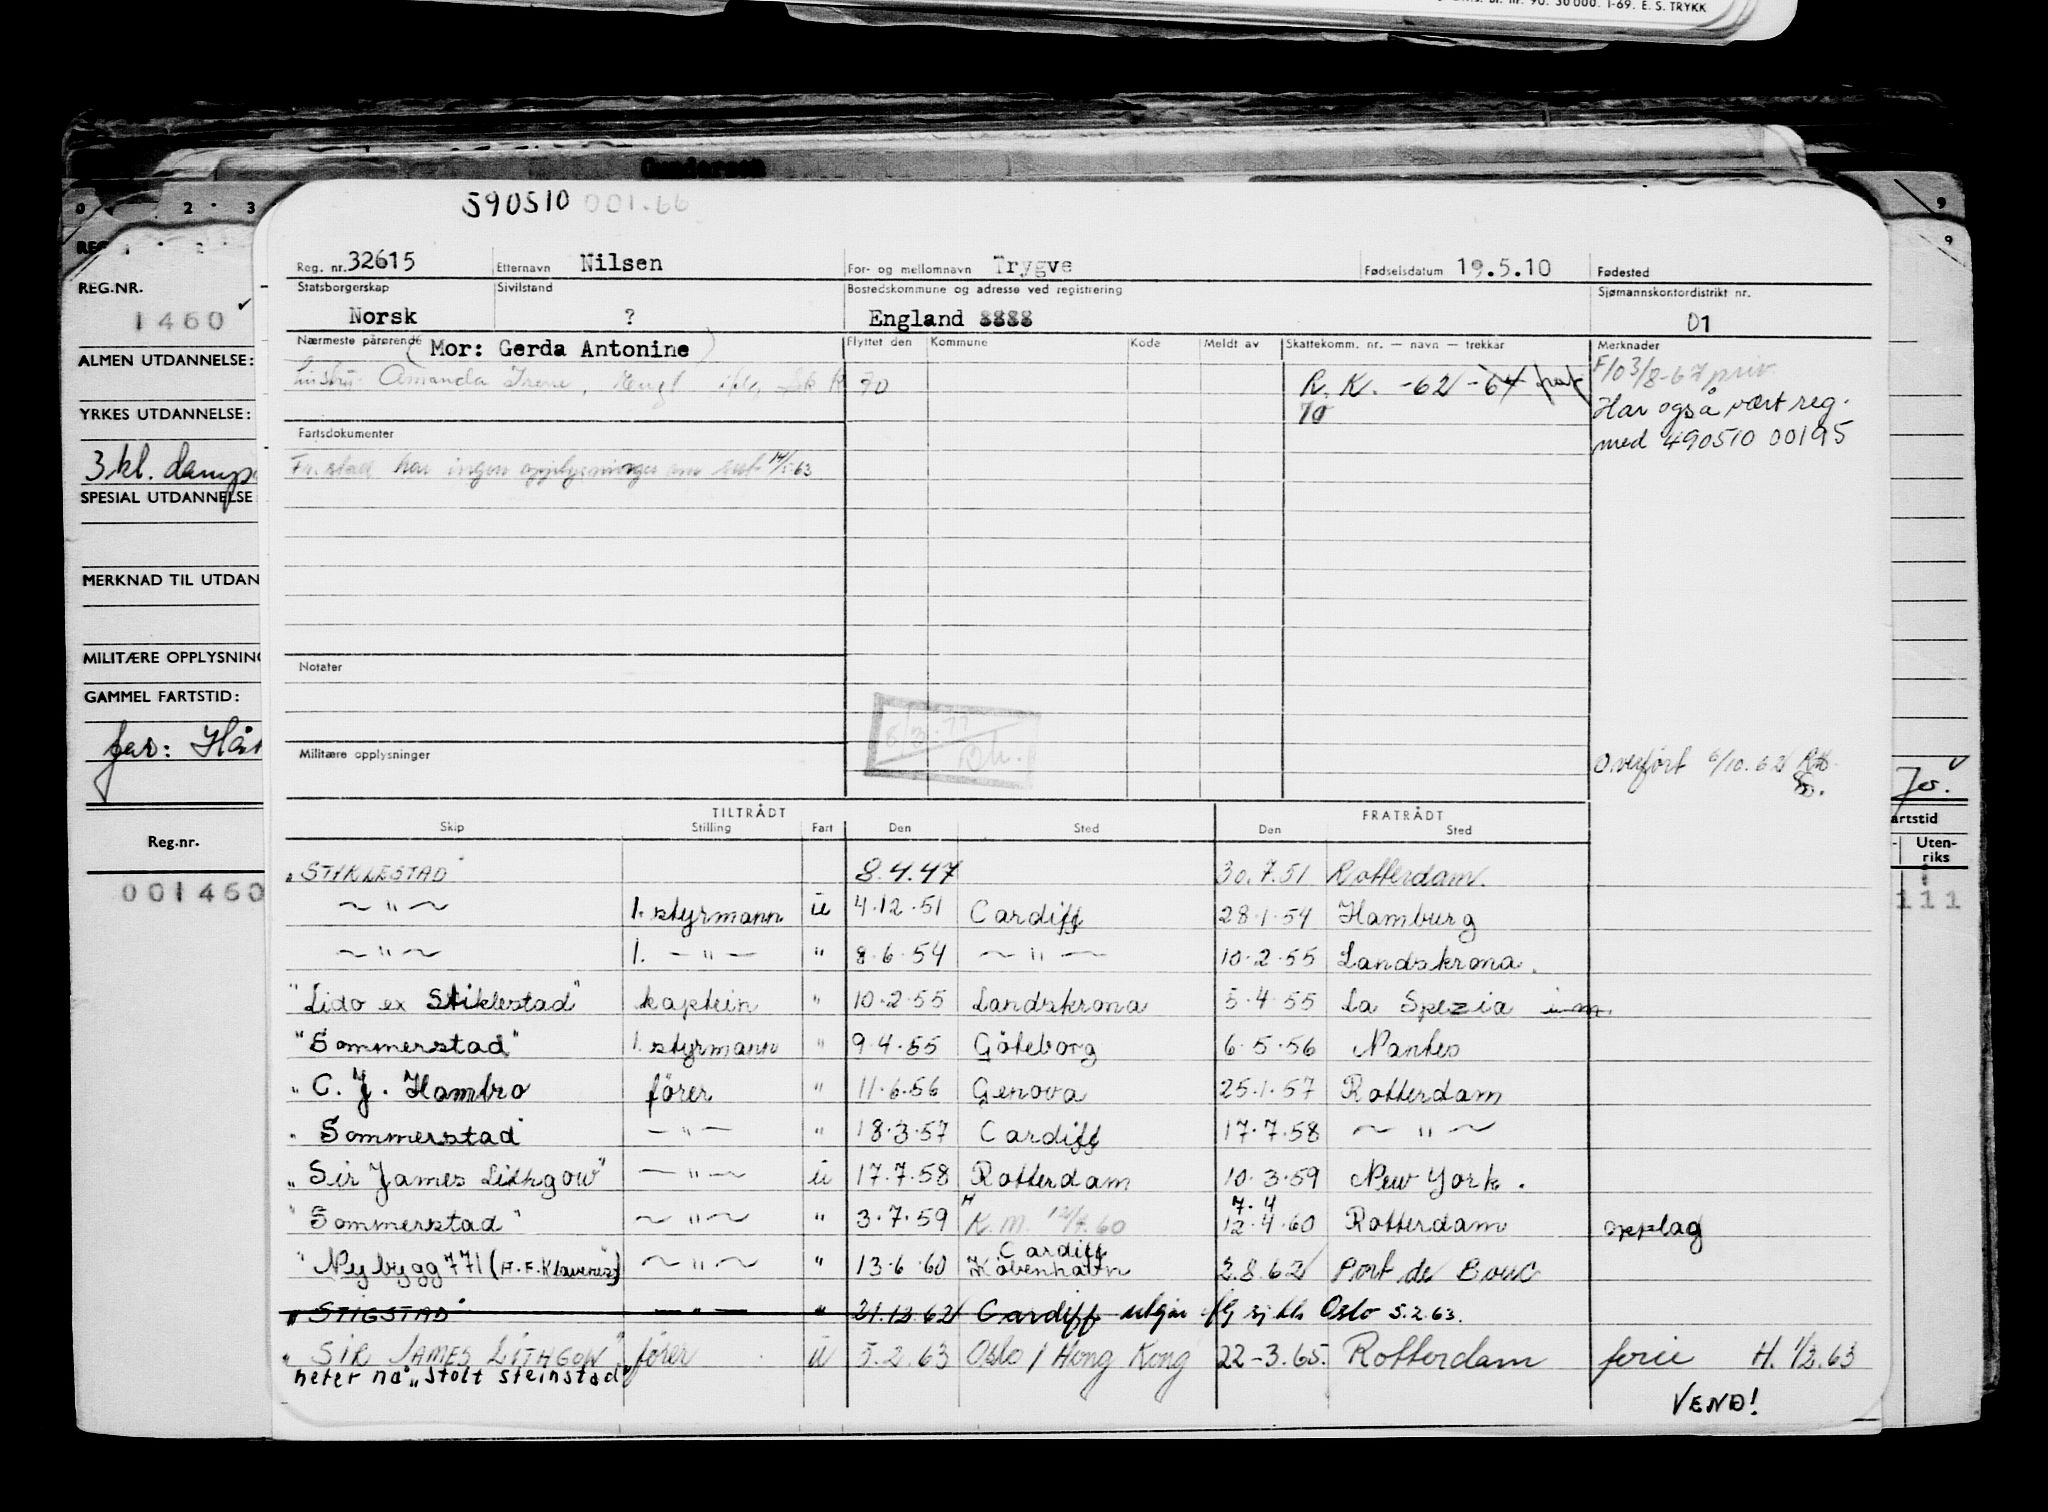 bl. nr. 90. 30 000. 1-69. E. S. TRYKK
Gundersen
0 2 3 9
REG.NR.
1460
ALMEN UTDANNELSE:
YRKES UTDANNELSE:
3 kl. damp
SPESIAL UTDANNELSE
MERKNAD TIL UTDAN
MILITÆRE OPPLYSNING
GAMMEL FARTSTID:
far:
Reg.nr.
001460
590510 001.66
Reg. nr. 32615 Etternavn Nilsen For- og mellomnavn Trygve Fødselsdatum 19.5.10 Fødested
Statsborgerskap Sivilstand Bostedskommune og adresse ved registrering Sjømannskontordistrikt nr.
Norsk ? England 8888 01
Nærmeste pårørende (Mor: Gerda Antonine) Flyttet den Kommune Kode Meldt av Skattekomm. nr. — navn — trekkår Merknader
Amanda Irene, 70 R. K. -62 -64
70
F/0 3/8-67 priv
Har også vært reg.
med 490510 00195
Fartsdokumenter
Fr.stad har ingen opplysninger om 14/5-63
Notater
8/3.77
Militære opplysninger
Overført 6/10.62
70.
TILTRÅDT FRATRÅDT
Skip Stilling Fart Den Sted Den Sted
artstid
Uten-
riks
111
"STIKLESTAD" 8.4.47 30.7.51 Rotterdam.
~ " ~ 1. styrmann u 4.12.51 Cardiff 28.1.54 Hamburg
~ " ~ 1. — " — " 8.6.54 ~ " — 10.2.55 Landskrona.
"Lido ex Stiklestad" kaptein " 10.2.55 Landskrona 5.4.55 La Spezia
"Sommerstad" 1. styrmann " 9.4.55 Göteborg 6.5.56 Nantes
" C. J. Hambro förer " 11.6.56 Genova 25.1.57 Rotterdam
" Sommerstad — " — " 18.3.57 Cardiff 17.7.58 ~ " ~
"Sir James Lithgow" — " ~ u 17.7.58 Rotterdam 10.3.59 New York.
7.4
"Sommerstad" ~ " ~ " 3.7.59 K.M. 12/4.60 12.4.60 Rotterdam opplag
Cardiff
"Nybygg 771 (A.F. Klaveness) ~ " ~ " 13.6.60 Köbenhavn 2.8.62 Port de Bouc
"STIGSTAD" — " — " 21.12.62 Cardiff utgår Oslo 5.2.63.
"SIR JAMES LITHGOW" förer u 5.2.63 Oslo / Hong Kong 22-3.65. Rotterdam ferie H. 1/3.63
heter nå "stolt steinstad"
VEND!